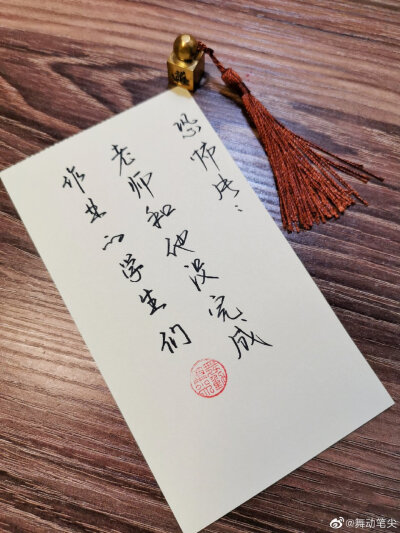 恐怖片：
老师和他没完成
作业的学生们
@舞动笔尖